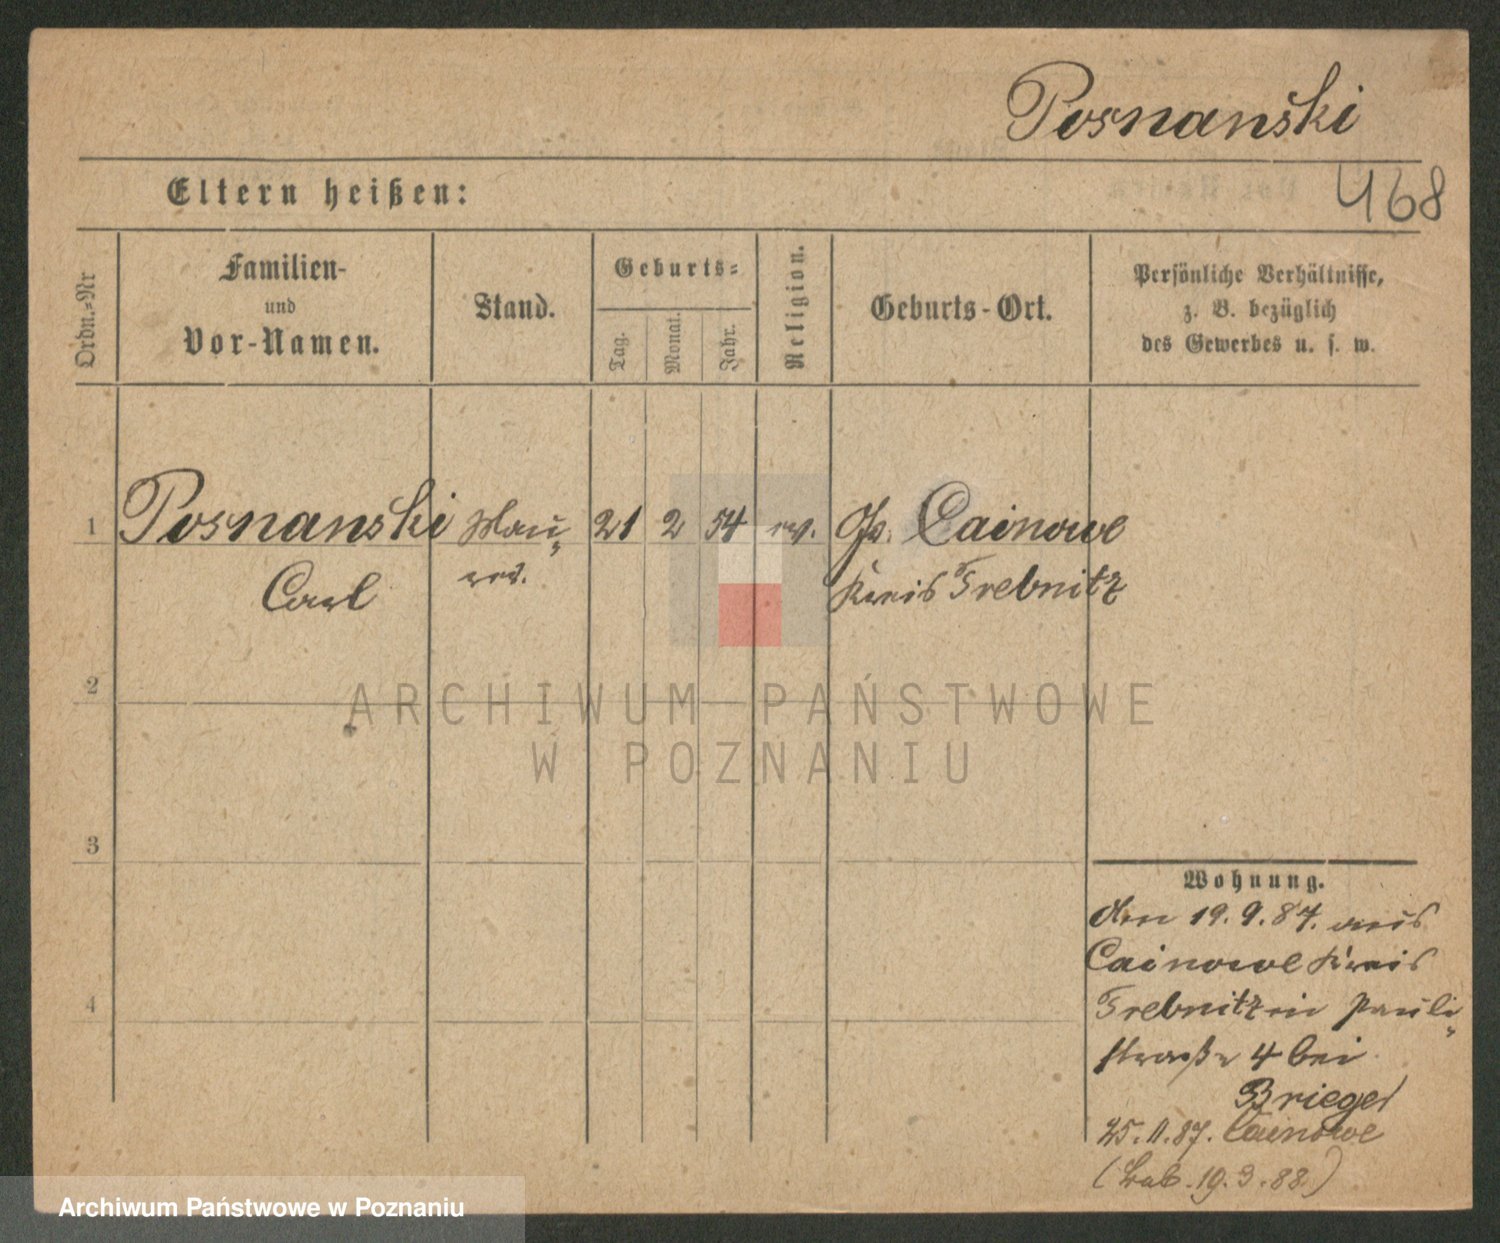 Posnanski
468
Eltern heißen:
Ordn.=Nr
Familien-
und
Vor-Namen.
Stand.
Geburts=
Tag.
Monat.
Jahr.
Religion.
Geburts-Ort.
Persönliche Verhältnisse,
z. B. bezüglich
des Gewerbes u. s. w.
1 Posnanski Mau„ 21 2 54 ev. Gr. Cainowe
Carl rer. Kreis Trebnitz
2
ARCHIWUM PAŃSTWOWE
W POZNANIU
3
Wohnung.
den 19.9.87. aus
Cainowe Kreis
Trebnitz in Pauli„
straße 4 bei
Brieger
25.11.87. Cainowe
(19.3.88)
4
Archiwum Państwowe w Poznaniu